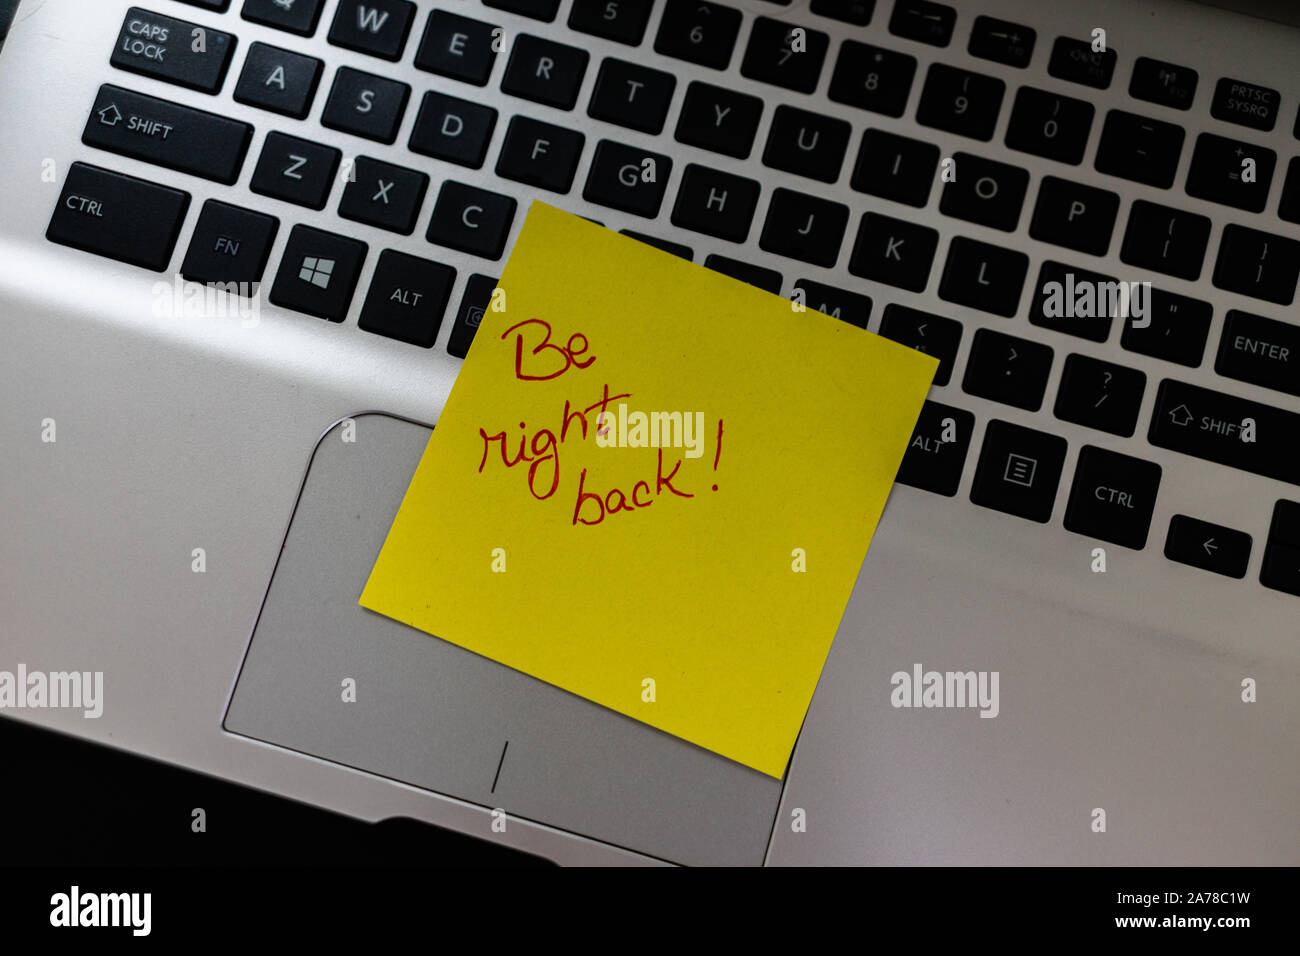 Q W E R T Y U I O P { [ } ]
5 ^ 6 & 7 * 8 ( 9 ) 0 _ - + = PRTSC SYSRQ
CAPS LOCK A S D F G H J K L " ' ENTER
SHIFT Z X C M < > . ? / SHIFT
CTRL FN ALT ALT CTRL ←
Be
right
back!
alamy
alamy
alamy
alamy
Image ID: 2A78C1W
www.alamy.com